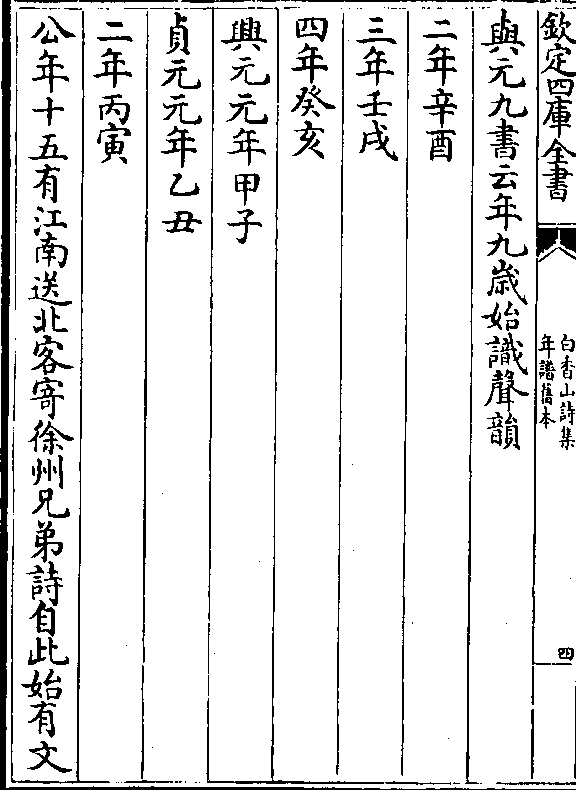 欽定四庫全書
白香山詩集
年譜舊本
四
與元九書云年九歳始識聲韻
二年辛酉
三年壬戌
四年癸亥
興元元年甲子
貞元元年乙丑
二年丙寅
公年十五有江南送北客寄徐州兄弟詩自此始有文